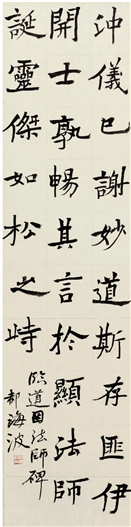 沖儀已謝妙道斯存匪伊
開士孰暢其言於顯法師
誕靈傑如松之峙
臨道因法師碑
郝海波